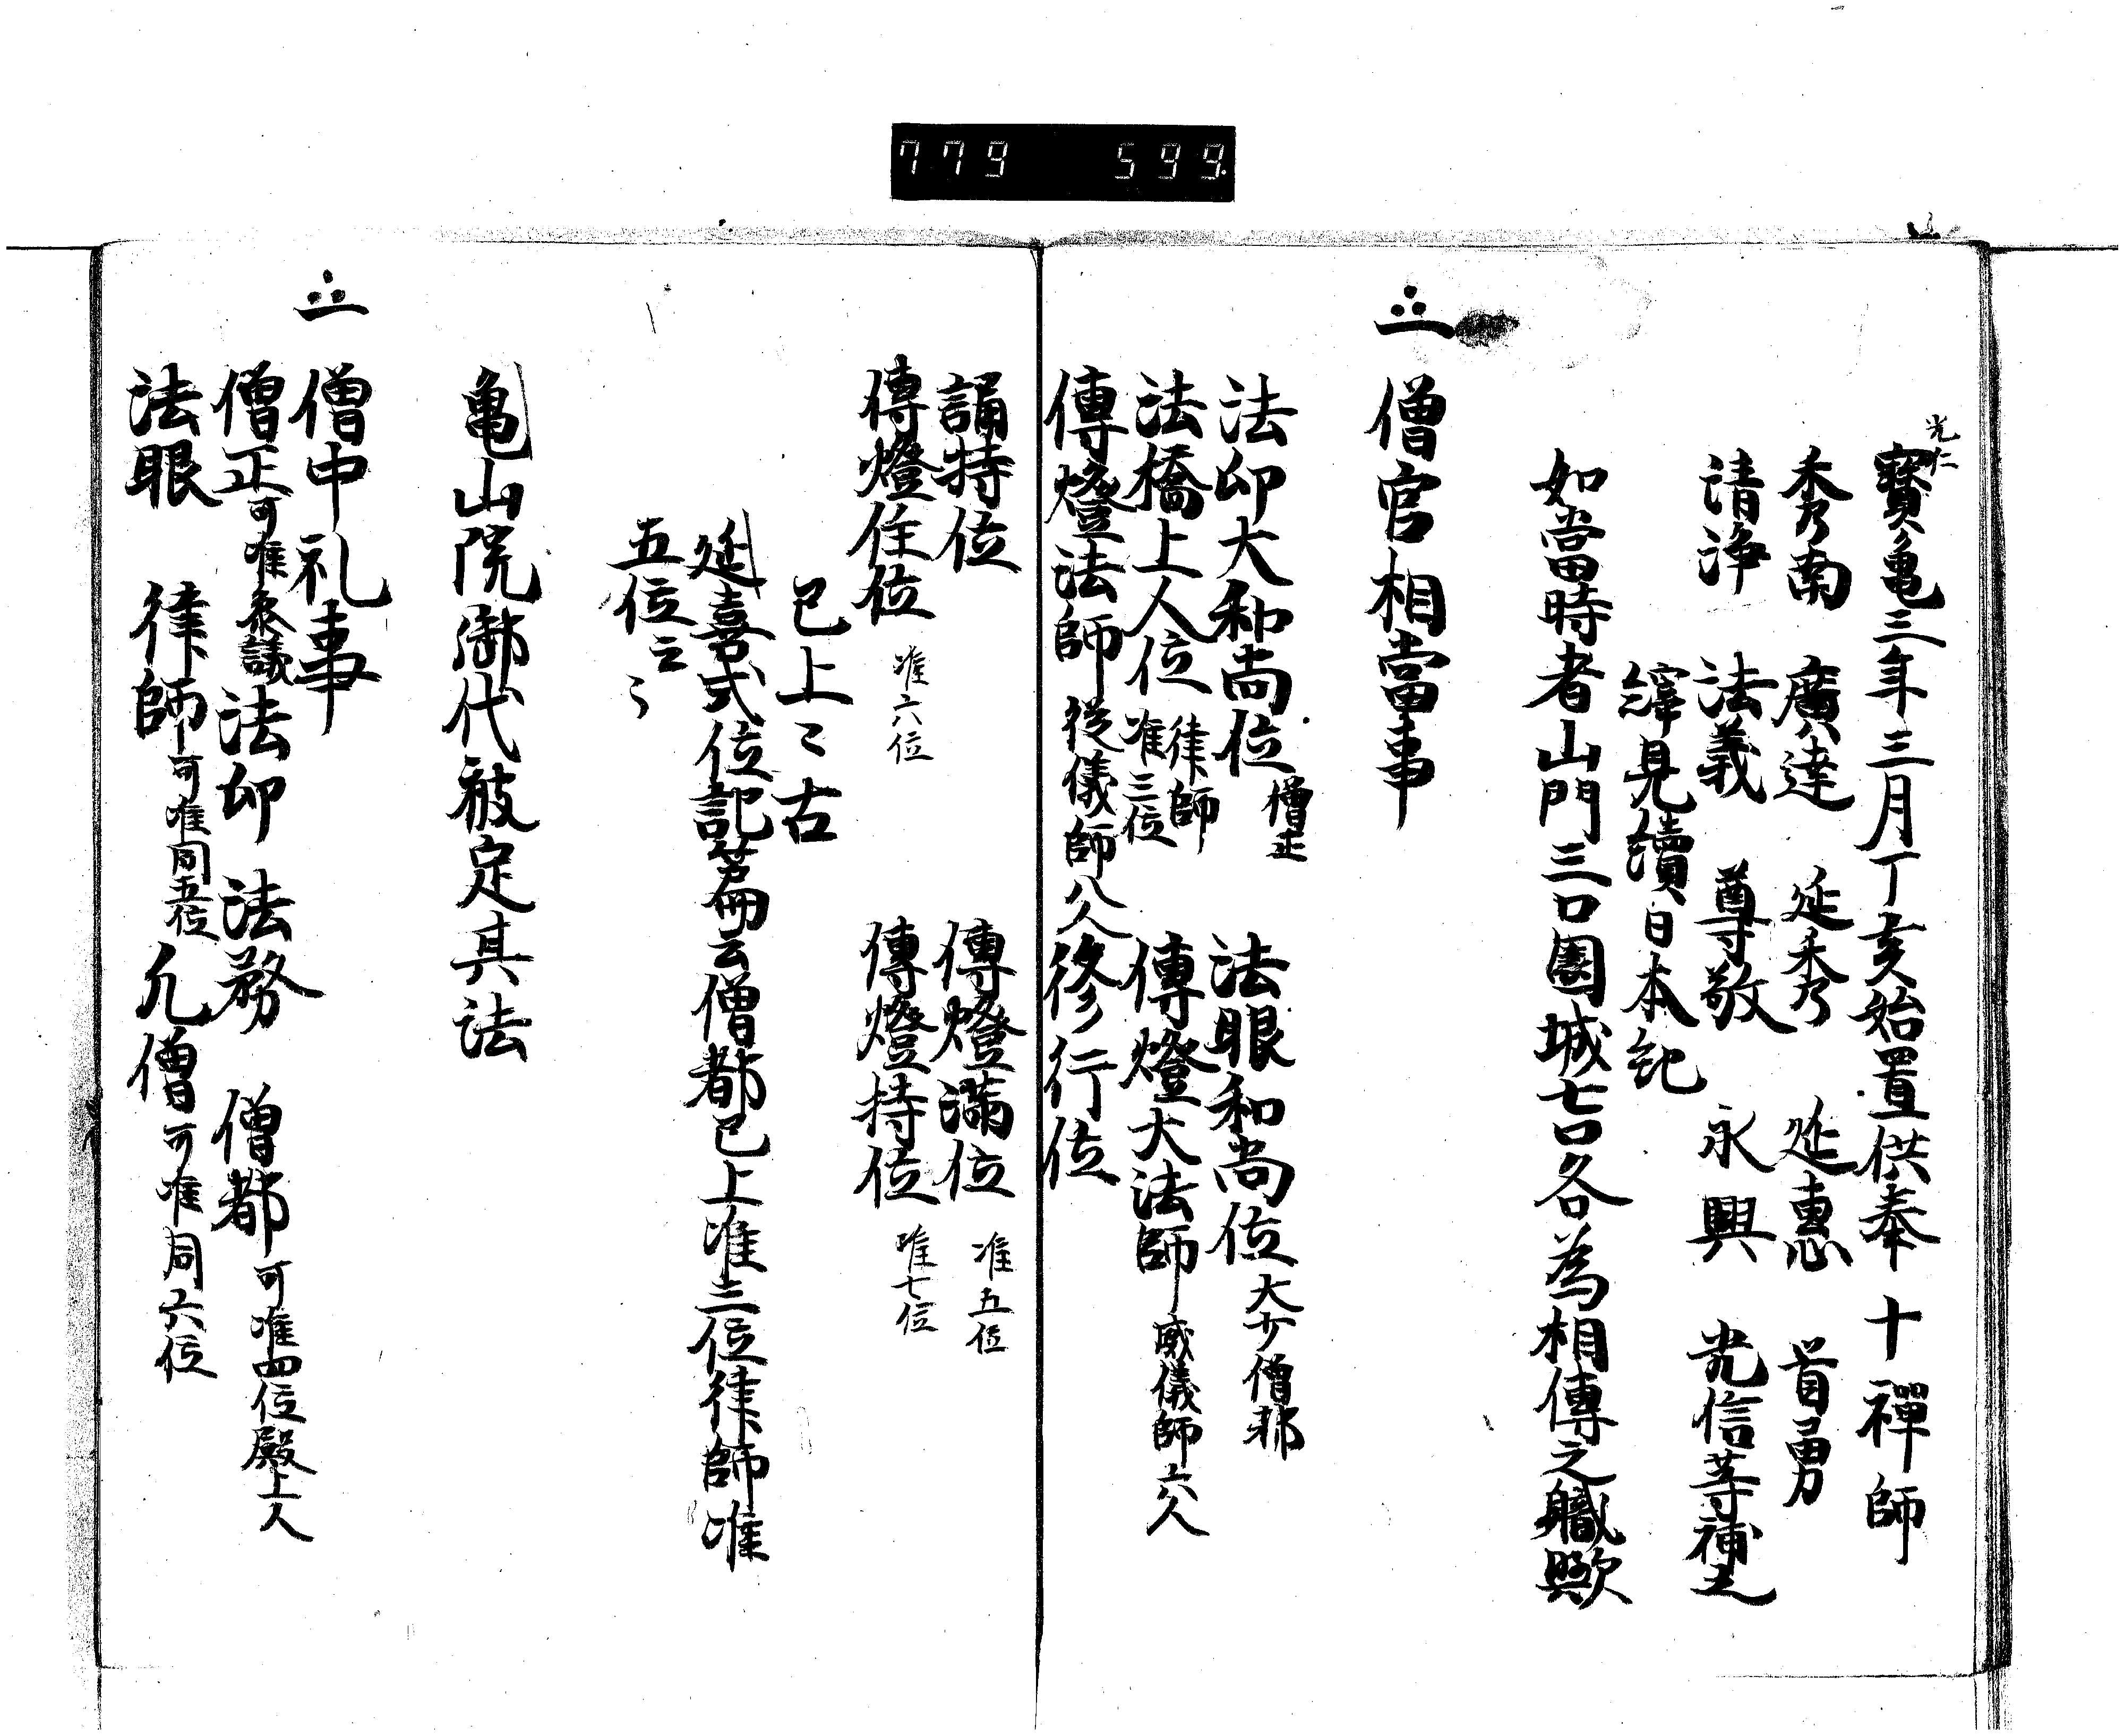 779 599
光仁
寶亀三年三月丁亥始置供奉十禪師
秀南 廣達 延秀 延惠 首勇
清浄 法義 尊敬 永興 光信等補之
繹見續日本紀
如當時者山門三口園城七口各為相傳之職歟
一 僧官相當事
法印大和尚位 僧正 法眼和尚位 大少僧都
法橋上人位 律師 准三位 傳燈大法師 威儀師六人
傳燈法師 従儀師八人 修行位
誦持位 傳燈満位 准五位
傳燈住位 准六位 傳燈持位 准七位
已上〻古
延喜式位記篇云僧都已上准三位律師准
五位云〻
亀山院御代被定其法
一 僧中礼事
僧正 可准参議 法印 法務 僧都 可准四位殿上人
法眼 律師 可准同五位 凡僧 可准同六位